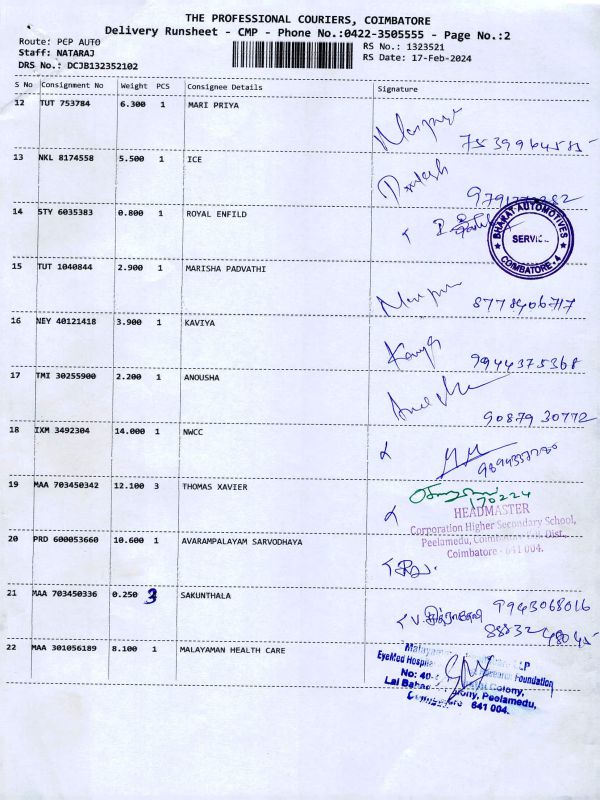 THE PROFESSIONAL COURIERS, COIMBATORE
Delivery Runsheet - CMP - Phone No.:0422-3505555 - Page No.:2
Route: PEP AUTO
RS No.: 1323521
Staff: NATARAJ
RS Date: 17-Feb-2024
DRS No.: DCJB132352102
S No Consignment No Weight PCS Consignee Details Signature
12 TUT 753784 6.300 1 MARI PRIYA
13 NKL 8174558 5.500 1 ICE
14 STY 6035383 0.800 1 ROYAL ENFILD
BHARAT AUTOMOTIVES
COIMBATORE - 4
15 TUT 1040844 2.900 1 MARISHA PADVATHI
8778406717
16 NEY 40121418 3.900 1 KAVIYA
Kavya
9944375368
17 TMI 30255900 2.200 1 ANOUSHA
90879 30772
18 IXM 3492304 14.000 1 NWCC
19 MAA 703450342 12.100 3 THOMAS XAVIER
170224
HEADMASTER
Corporation Higher Secondary School,
Peelamedu, Dist,
Coimbatore - 641 004.
20 PRD 600053660 10.600 1 AVARAMPALAYAM SARVODHAYA
21 MAA 703450336 0.250 3 SAKUNTHALA
9943068016
22 MAA 301056189 8.100 1 MALAYAMAN HEALTH CARE
EyeMed Foundation
No: 40
Colony, Peelamedu,
641 004.